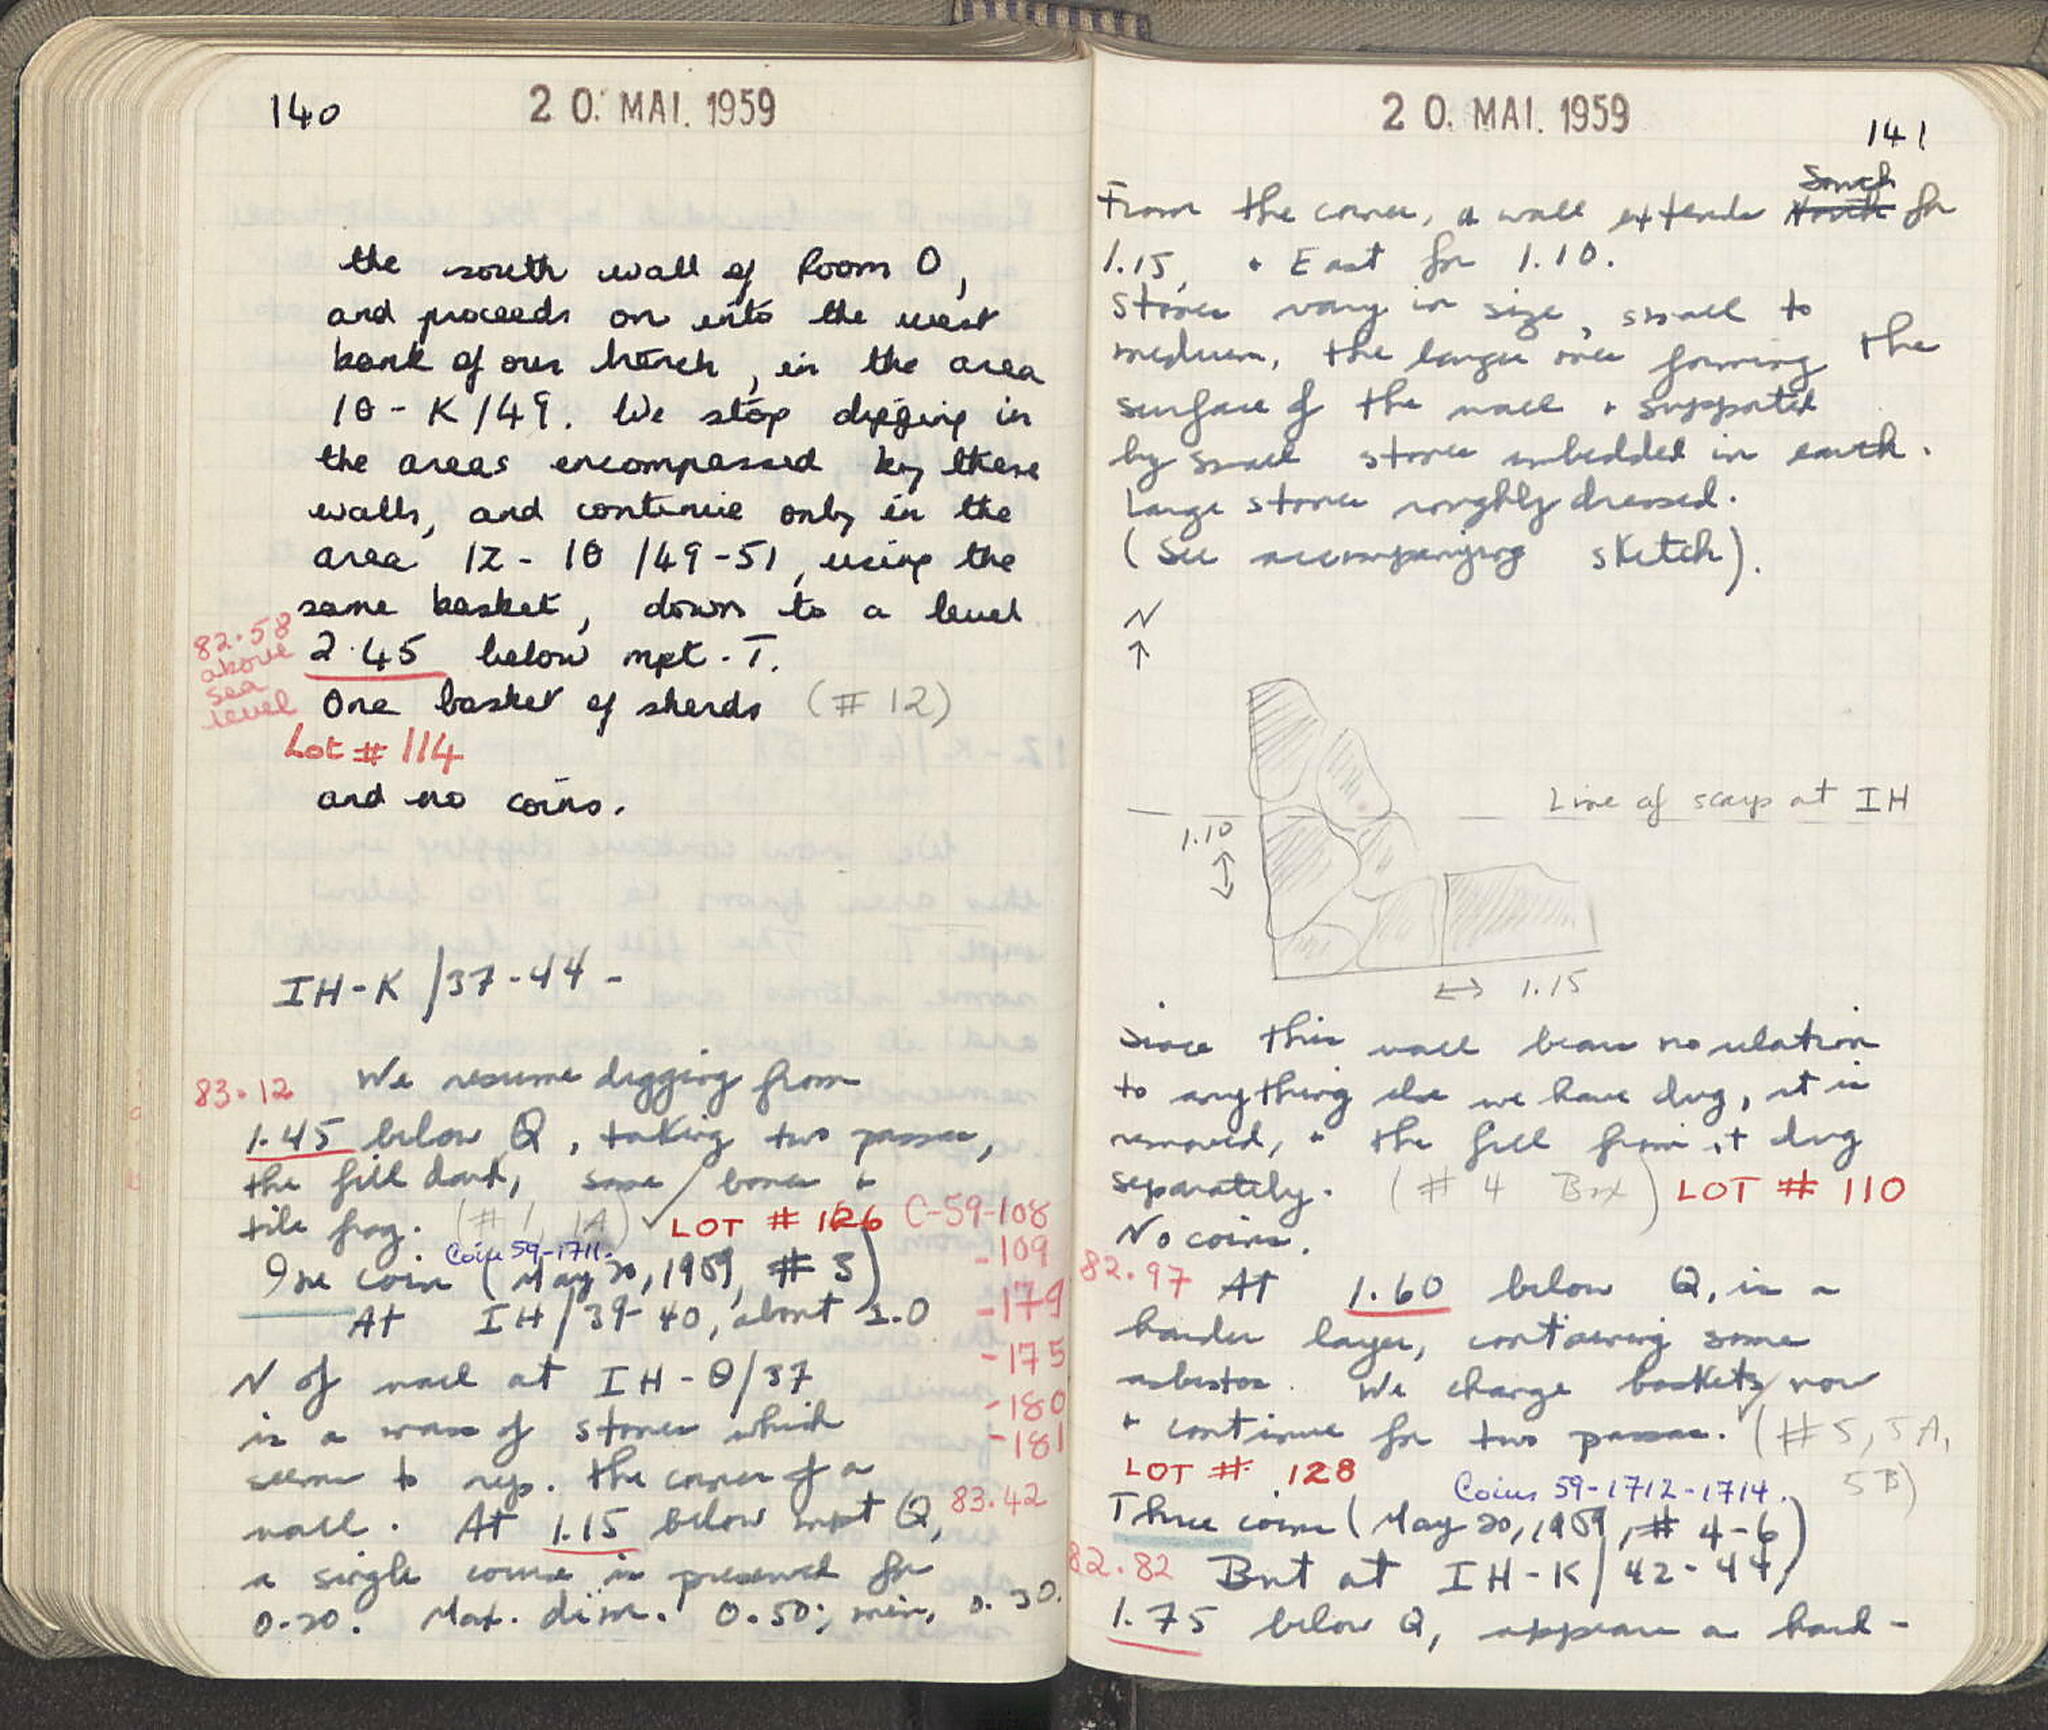 140
20. MAI. 1959
the south wall of Room O,
and proceeds on into the west
bank of our trench, in the area
1Θ - K/49. We stop digging in
the areas encompassed by these
walls, and continue only in the
area IZ - 1Θ /49-51, using the
same basket, down to a level
82.58
above
sea
level
2.45 below mpt. T.
One basket of sherds (# 12)
Lot # 114
and no coins.
IH-K/37-44 -
We resume digging from
83.12
1.45 below Q, taking two passes,
the fill dark, some bones +
tile frag. (# 1, 1A) ✓ LOT # 126 C-59-108
-109
-179
-175
-180
-181
Coin 59-1711.
One coin (May 20, 1959, # 3)
At IH/39-40, about 1.0
N of wall at IH-Θ/37
is a mass of stones which
seem to rep. the corner of a
wall. At 1.15 below mpt Q, 83.42
a single course is preserved for
0.20. Max. dim. 0.50; min. 0.30.
20. MAI. 1959
141
South
From the corner, a wall extends North for
1.15, + East for 1.10.
Stones vary in size, small to
medium, the larger ones forming the
surface of the wall + supported
by small stones imbedded in earth.
Large stones roughly dressed.
(See accompanying sketch).
N
↑
Line of scarp at IH
1.10
↕
↔ 1.15
Since this wall bears no relation
to anything else we have dug, it is
removed, + the fill from it dug
separately. (# 4 Box) LOT # 110
No coins.
82.97
At 1.60 below Q, is a
harder layer, containing some
asbestos. We change baskets now
+ continue for two passes. ✓ (# 5, 5A,
5B)
LOT # 128
Coins 59-1712-1714.
Three coins (May 20, 1959, # 4-6)
82.82
But at IH-K/42-44,
1.75 below Q, appears a hard-